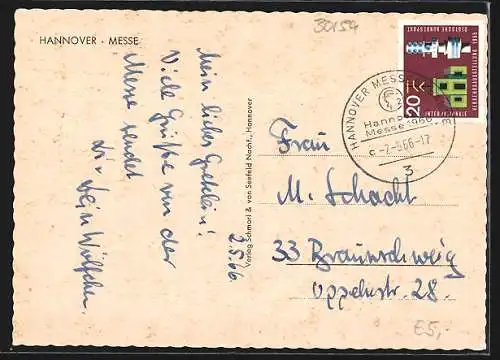 HANNOVER - MESSE
30154
2.5.66
Mein liebes Gretelein!
Viele Grüße von der
Messe sendet
dir Dein Wölfchen.
Verlag Schmorl & von Seefeld Nachf., Hannover
HANNOVER MESSE
Hanno
Messe 1966
c -2.-5.66-17
3
DEUTSCHE BUNDESPOST
1965
20
Frau
M. Schacht
33 Braunschweig
Oppelnstr. 28.
E5,-